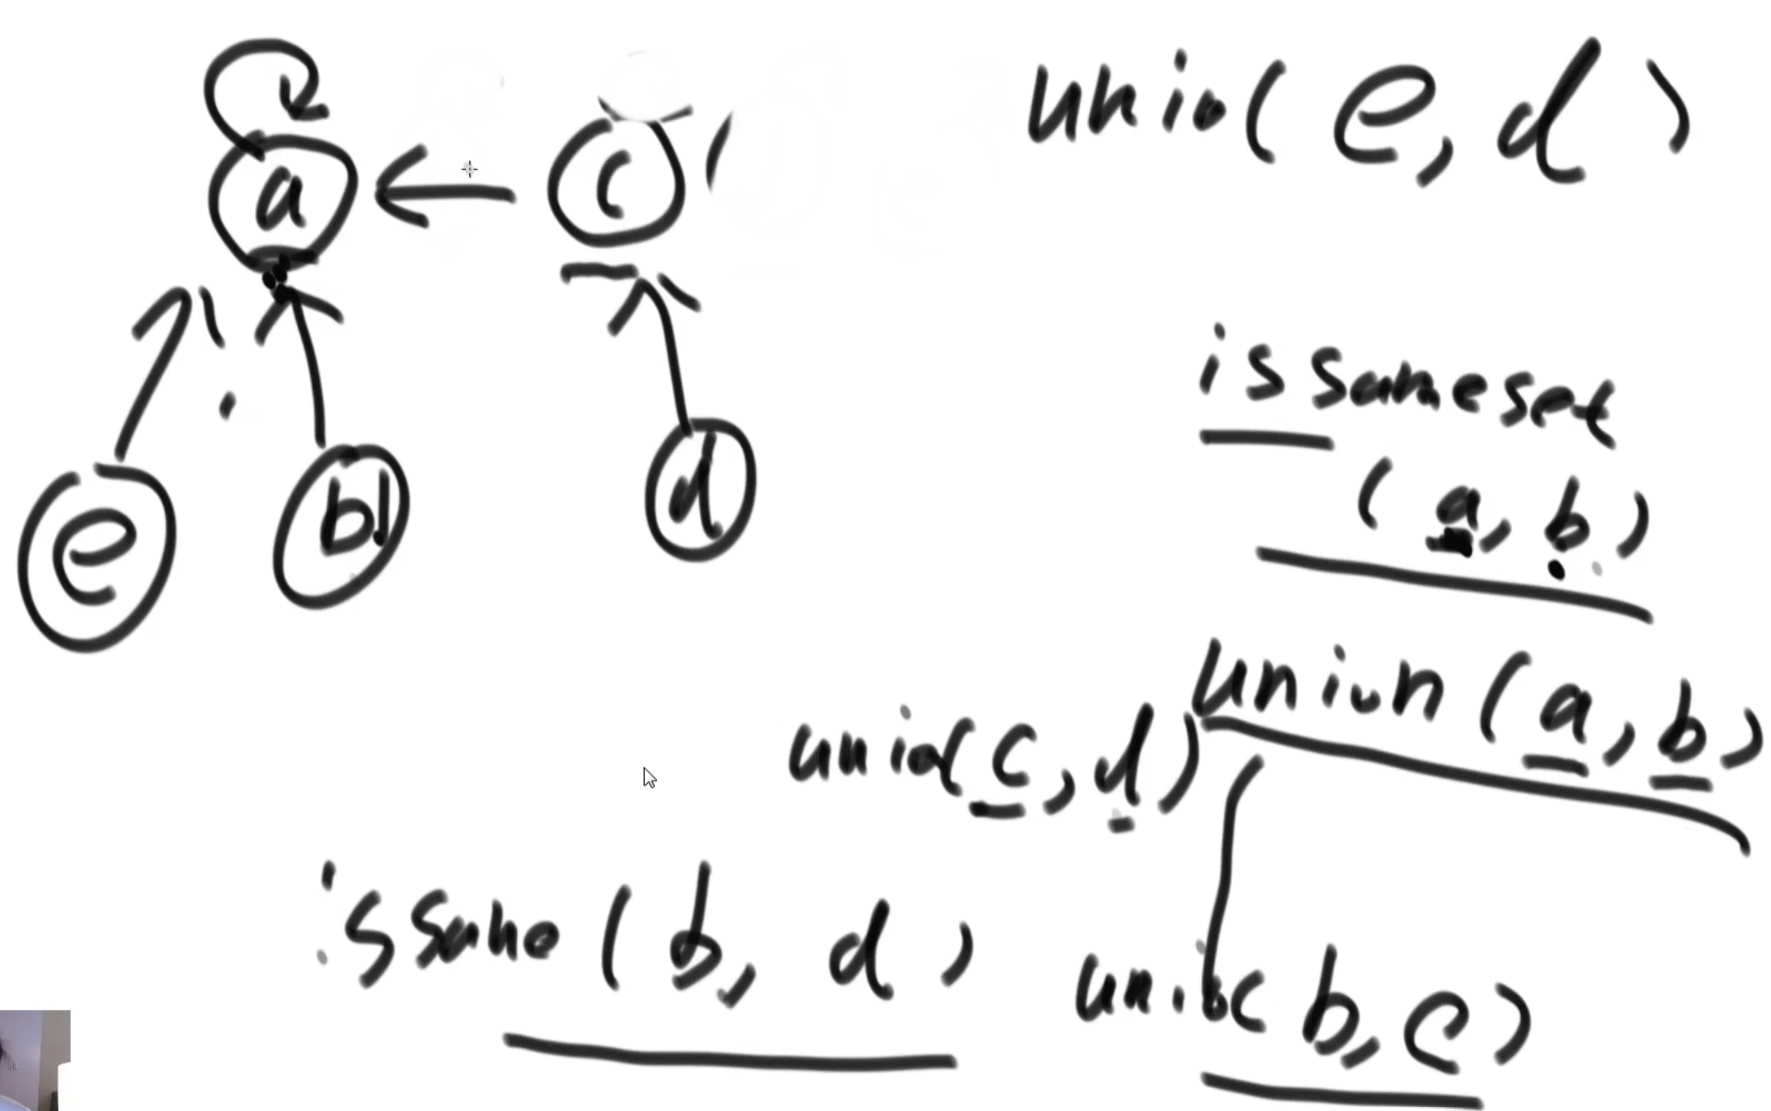 a
c
e
b
d
unio( e, d )
issameset
( a, b )
union ( a, b )
unio( c, d )
issame ( b, d )
unio( b, e )